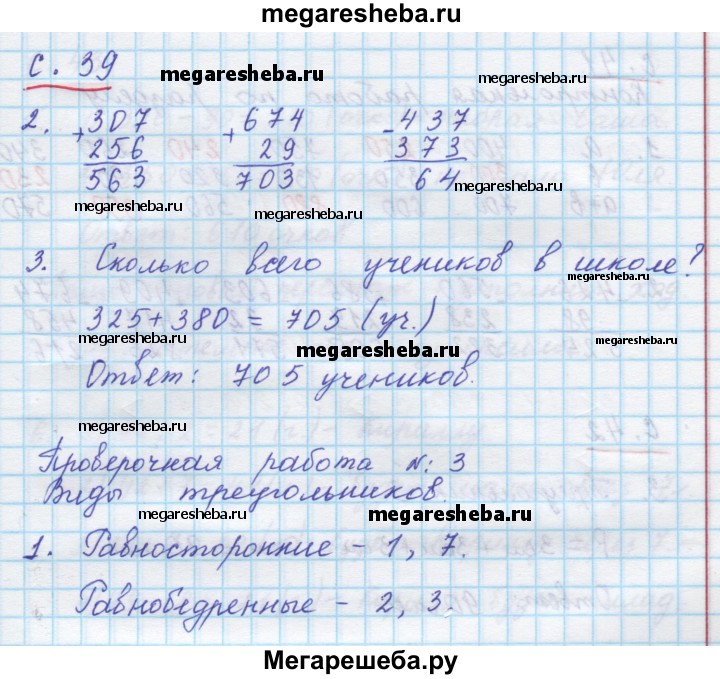 megaresheba.ru
с. 39
megaresheba.ru
2. +307 +674 -437
256 29 373
563 703 64
megaresheba.ru megaresheba.ru megaresheba.ru
3. Сколько всего учеников в школе?
megaresheba.ru
325+380 = 705 (уч.)
megaresheba.ru
megaresheba.ru
Ответ: 705 учеников.
megaresheba.ru
Проверочная работа №: 3
Виды треугольников.
megaresheba.ru megaresheba.ru
1. Равносторонние – 1, 7.
Равнобедренные – 2, 3.
megaresheba.ru
Мегарешеба.ру